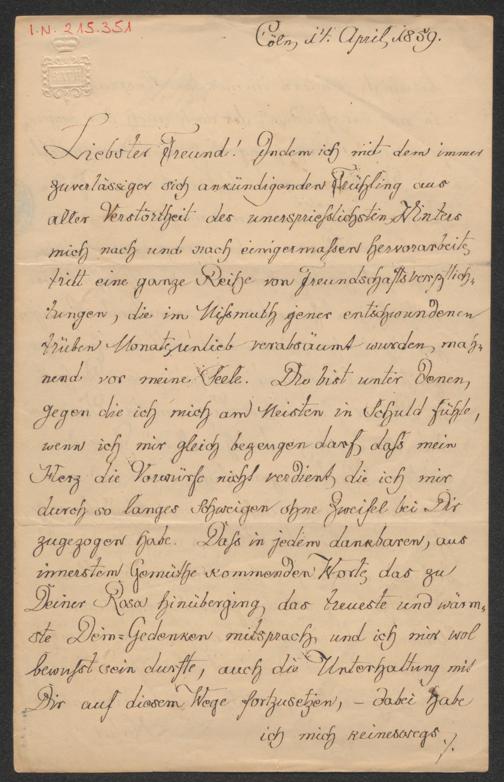 I.N. 215.351
BATH
Cöln, 14. April, 1859.
Liebster Freund! Indem ich mit dem immer
zuverlässiger sich ankündigenden Frühling aus
aller Verstörtheit des unerspriesslichsten Winters
mich nach und nach einigermassen hervorarbeite,
tritt eine ganze Reihe von Freundschaftsverpflich-
tungen, die im Missmuth jener entschwundenen
trüben Monate unlieb verabsäumt wurden, mah-
nend vor meine Seele. Du bist unter denen,
gegen die ich mich am Meisten in Schuld fühle,
wenn ich mir gleich bezeugen darf, dass mein
Herz die Vorwürfe nicht verdient, die ich mir
durch so langes Schweigen ohne Zweifel bei Dir
zugezogen habe. Dass in jedem dankbaren, aus
innerstem Gemüthe kommenden Worte, das zu
Deiner Rosa hinüberging, das treueste und wärm-
ste Dein=Gedenken mitsprach, und ich mir wol
bewusst sein durfte, auch die Unterhaltung mit
Dir auf diesem Wege fortzusetzen, – dabei habe
ich mich keineswegs ./.